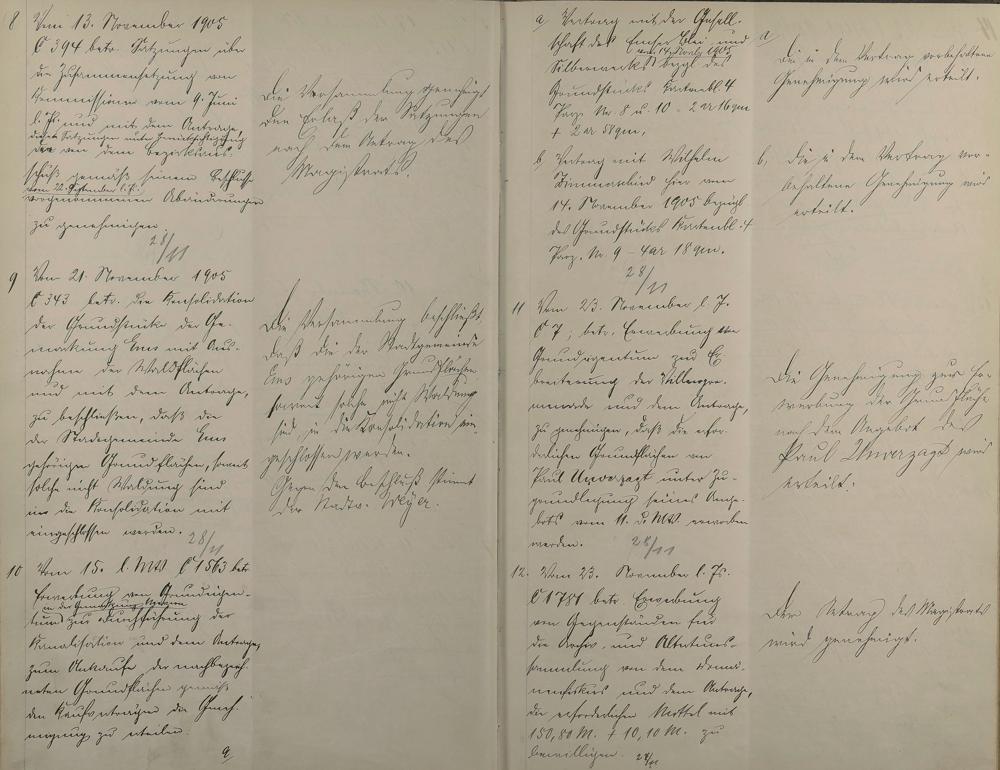 8 Vom 13. November 1905
C 394 betr. Satzungen über
die Zusammensetzung von
Kommissionen vom 9. Juni
l. Js. und mit dem Antrage,
diese Satzungen unter Berücksichtigung
der von dem Bezirksaus-
schuß gemäß seinem Beschluße
vom 22. September l. Js.
vorgenommenen Abänderungen
zu genehmigen.
28/11
Die Versammlung genehmigt
den Erlaß der Satzungen
nach dem Antrag des
Magistrats.
9 Vom 21. November 1905
C 343 betr. die Konsolidation
der Grundstücke der Ge-
markung Ems mit Aus-
nahme der Waldflächen
und mit dem Antrage,
zu beschließen, daß die
der Stadtgemeinde Ems
gehörigen Grundflächen, soweit
solche nicht Waldung sind
in die Konsolidation mit
eingeschlossen werden.
28/11
Die Versammlung beschließt
daß die der Stadtgemeinde
Ems gehörigen Grundflächen
soweit solche nicht Waldung
sind, in die Konsolidation ein-
geschlossen werden.
Gegen den Beschluß stimmt
der Stadtv.
10 Vom 15. l. Mts C 1563 betr.
Erwerbung von Grundeigen-
in der Gemarkung
tum zur Durchführung der
Kanalisation und dem Antrage,
zum Ankaufe der nachbezeich-
neten Grundflächen gemäß
den Kaufverträgen die Geneh-
migung zu erteilen.
a
a Vertrag mit der Gesell-
schaft des Emser Blei und
vom 14. 1905
Silberwerks bezgl. des
Grundstücks Kartenbl. 4
Parz. Nr. 8 u. 10 = 2 ar 16 qm
+ 2 ar 58 qm,
a Die in dem Vertrag vorbehaltene
Genehmigung wird erteilt.
b Vertrag mit Wilhelm
Zimmerschied hier vom
14. November 1905 bezügl.
des Grundstücks Kartenbl. 4
Parz. Nr. 9 – 4 ar 18 qm.
28/11
b, Die in dem Vertrag vor-
behaltene Genehmigung wird
erteilt.
11 Vom 23. November l. Js.
C 7, betr. Erwerbung von
Grundeigentum zur Er-
breiterung der Villenpro-
menade und dem Antrage,
zu genehmigen, daß die erfor-
derlichen Grundflächen von
Paul Unverzagt unter Zu-
grundlegung seines Ange-
bots vom 11. d. Mts. erworben
werden.
28/11
Die Genehmigung zur Er-
werbung der Grundfläche
nach dem Angebot des
Paul Unverzagt wird
erteilt.
12. Vom 23. November l. Js.
C 1781 betr. Erwerbung
von Gegenständen für
die Archiv- und Altertums-
sammlung von dem Domä-
nenfiskus und dem Antrage,
die erforderlichen Mittel mit
150,80 M. + 10,10 M. zu
bewilligen.
28/11
Der Antrag des Magistrats
wird genehmigt.